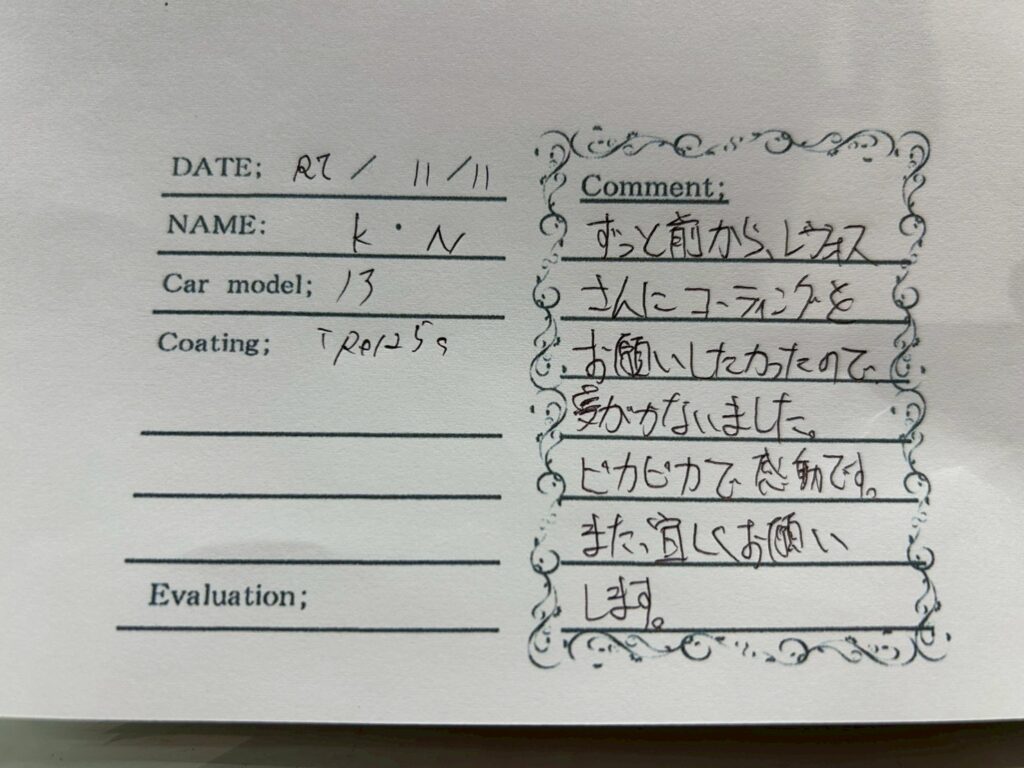 DATE; R7 / 11/11
NAME: K・N
Car model; 13
Coating;
Evaluation;
Comment;
ずっと前から、レヴォス
さんにコーティングを
お願いしたかったので、
夢がかないました。
ピカピカで感動です。
また、宜しくお願い
します。